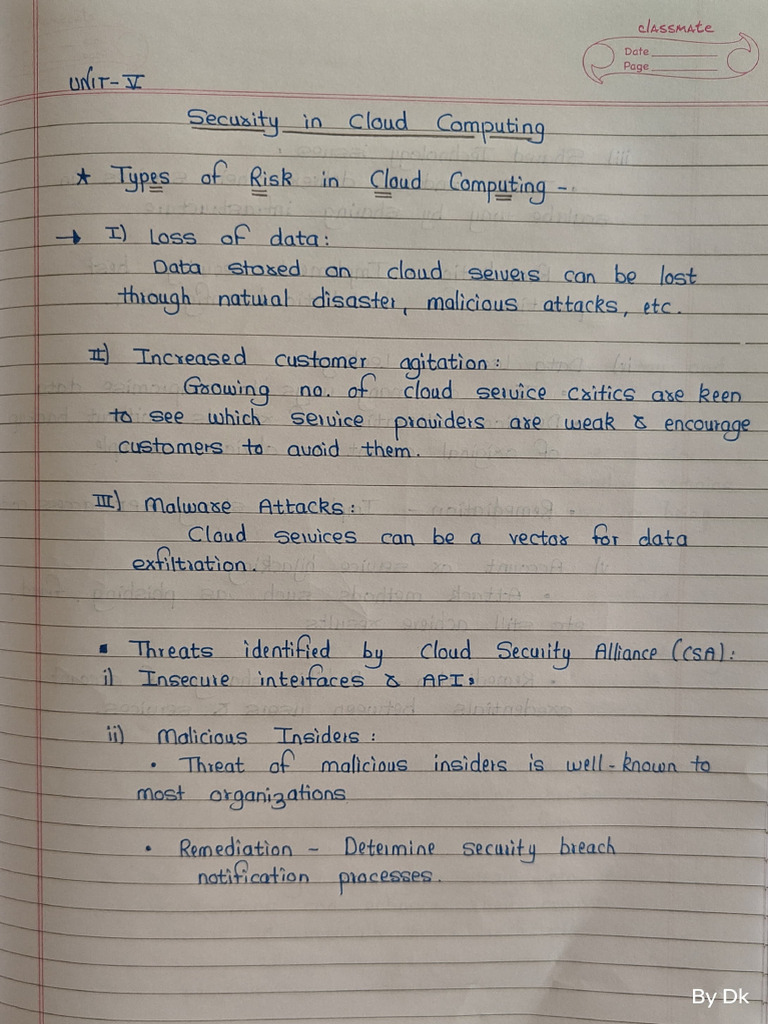 classmate
Date
Page
UNIT-V
Security in Cloud Computing
★ Types of Risk in Cloud Computing -
→ I) Loss of data:
Data stored on cloud servers can be lost
through natural disaster, malicious attacks, etc.
II) Increased customer agitation:
Growing no. of cloud service critics are keen
to see which service providers are weak & encourage
customers to avoid them.
III) Malware Attacks:
Cloud services can be a vector for data
exfiltration.
▪ Threats identified by Cloud Security Alliance (CSA):
i) Insecure interfaces & APIs
ii) Malicious Insiders:
• Threat of malicious insiders is well-known to
most organizations
• Remediation - Determine security breach
notification processes.
By Dk